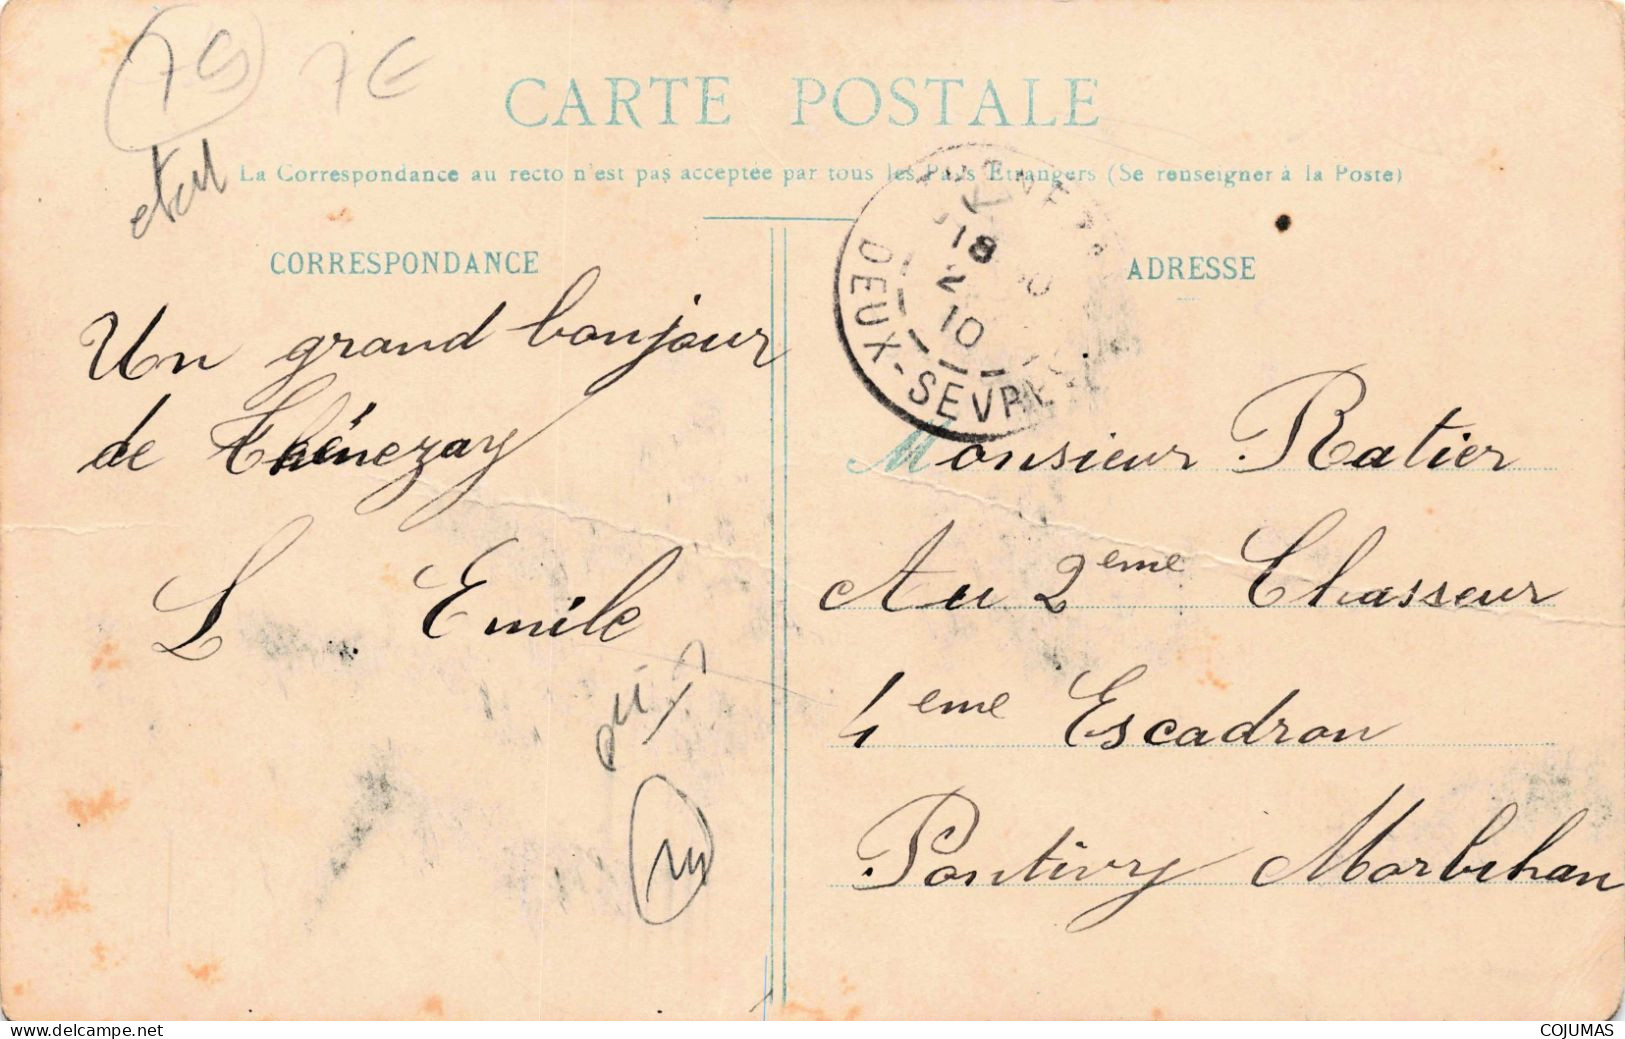 79 7€
CARTE POSTALE
état
La Correspondance au recto n'est pas acceptée par tous les Pays Etrangers (Se renseigner à la Poste)
CORRESPONDANCE
Un grand bonjour
de Thénezay
L Emile
18
2
10
DEUX-SEVRES
ADRESSE
Monsieur Ratier
Au 2eme Chasseur
4eme Escadron
Pontivy Morbihan
https://www.delcampe.net
COJUMAS